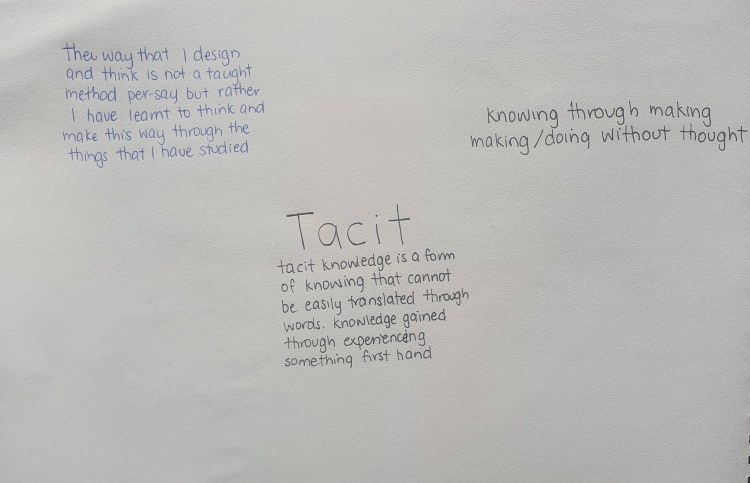 the way that I design
and think is not a taught
method per-say but rather
I have learnt to think and
make this way through the
things that I have studied
knowing through making
making/doing without thought
Tacit
tacit knowledge is a form
of knowing that cannot
be easily translated through
words. knowledge gained
through experiencing
something first hand